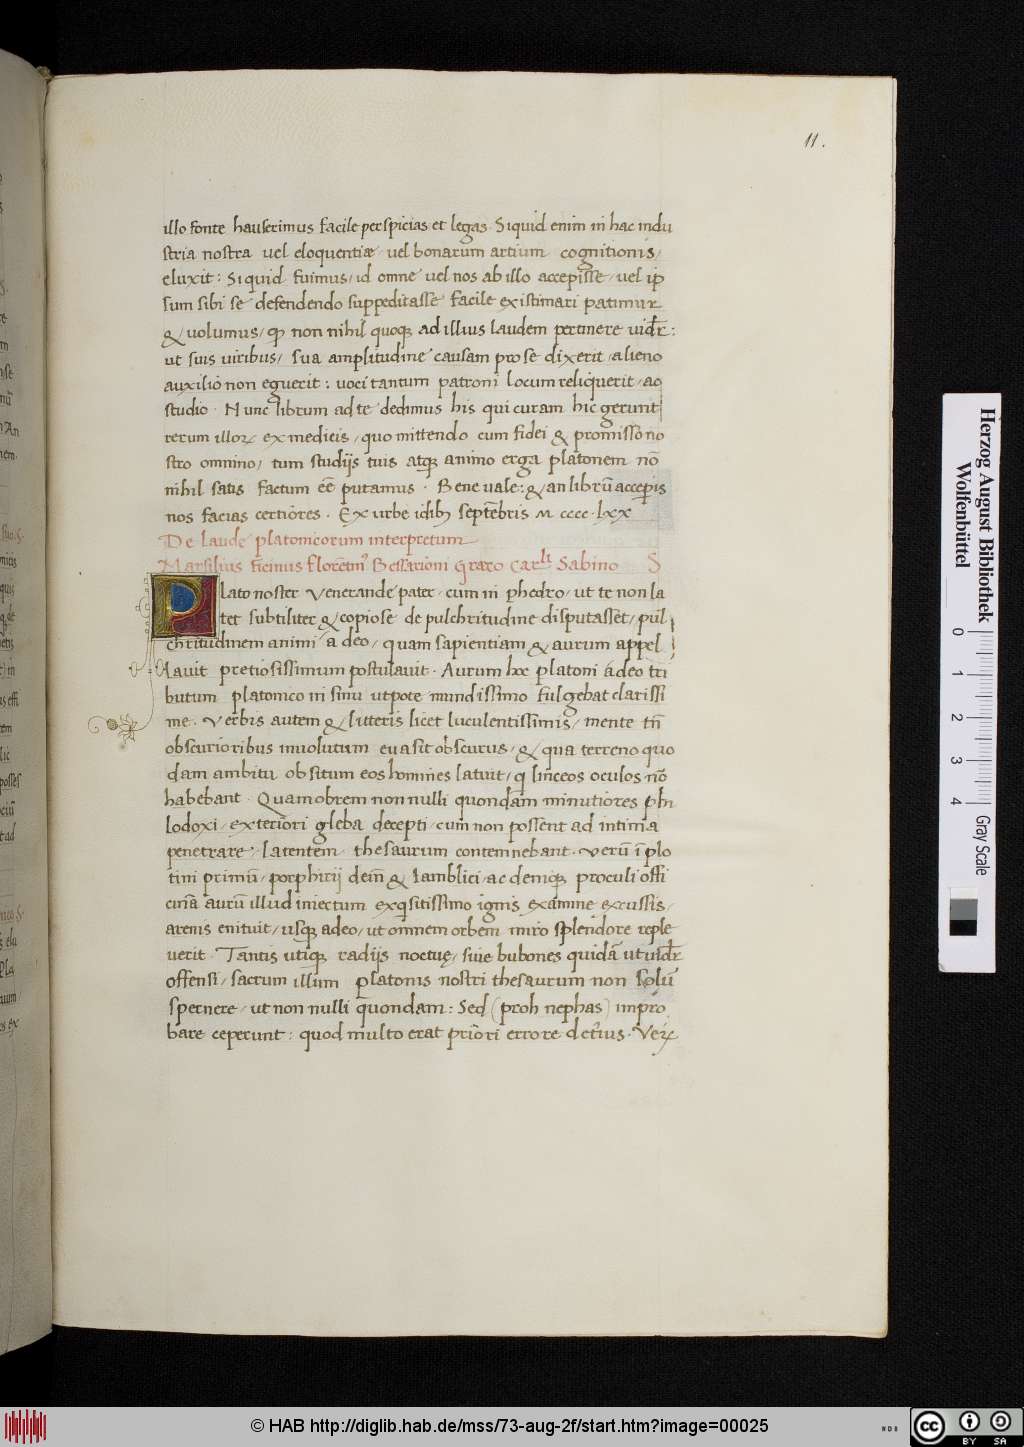 11.
illo fonte hauserimus facile perspicias et legas. Siquid enim in hac indu
stria nostra uel eloquentiæ uel bonarum artium cognitionis,
eluxit: Siquid fuimus, id omne uel nos ab illo accepisse, uel ip
sum sibi se defendendo suppeditasse facile existimari patimur
& uolumus, ꝙ non nihil quoqꝫ ad illius laudem pertinere uidet̄:
ut suis uiribus, sua amplitudine causam pro se dixerit, alieno
auxilio non eguerit: uoci tantum patroni locum reliquerit, ac
studio. Nunc librum ad te dedimus his qui curam hic gerunt
rerum illoꝝ ex medicis, quo mittendo cum fidei & promisso no
stro omnino, tum studijs tuis atqꝫ animo erga platonem nō
nihil satis factum eē putamus. Bene uale: & an librū acceperis
nos facias certiores. Ex urbe idibꝫ septēbris M cccc lxx
De laude platonicorum interpretum
Marsilius ficinus florētin⁹ Bessarioni graco Carli Sabino S
Plato noster Venerande pater, cum in phedro, ut te non la
ter subtiliter & copiose de pulchritudine disputasset, pul
chritudinem animi a deo, quam sapientiam & aurum appel
lauit pretiosissimum postulauit. Aurum hoc platoni a deo tri
butum platonico in sinu utpote mundissimo fulgebat clarissi
me. Verbis autem & litteris licet luculentissimis, mente tn̄
obscurioribus inuolutum euasit obscurus, & qua terreno quo
dam ambitu obsitum eos homines latuit, q linceos oculos nō
habebant. Quamobrem non nulli quondam minutiores phi
lodoxi, exteriori gleba decepti, cum non possent ad intima
penetrare, latentem thesaurum contemnebant. Verū ī plo
tini primū, porphirij dein̄ & Iamblici, ac deniqꝫ proculi offi
cinā aurū illud iniectum exqsitissimo ignis examine excussis,
arenis enituit, usqꝫ adeo, ut omnem orbem miro splendore reple
uerit. Tantis utiqꝫ radijs noctuę, siue bubones quidā ut uidet̄
offensi, sacrum illum platonis nostri thesaurum non solū
spernere, ut non nulli quondam: Sed (proh nephas) impro
bare ceperunt: quod multo erat priori errore det̄ius. Veꝝ
Herzog August Bibliothek
Wolfenbüttel
0 1 2 3 4
Gray Scale
© HAB http://diglib.hab.de/mss/73-aug-2f/start.htm?image=00025
WDB
cc BY SA